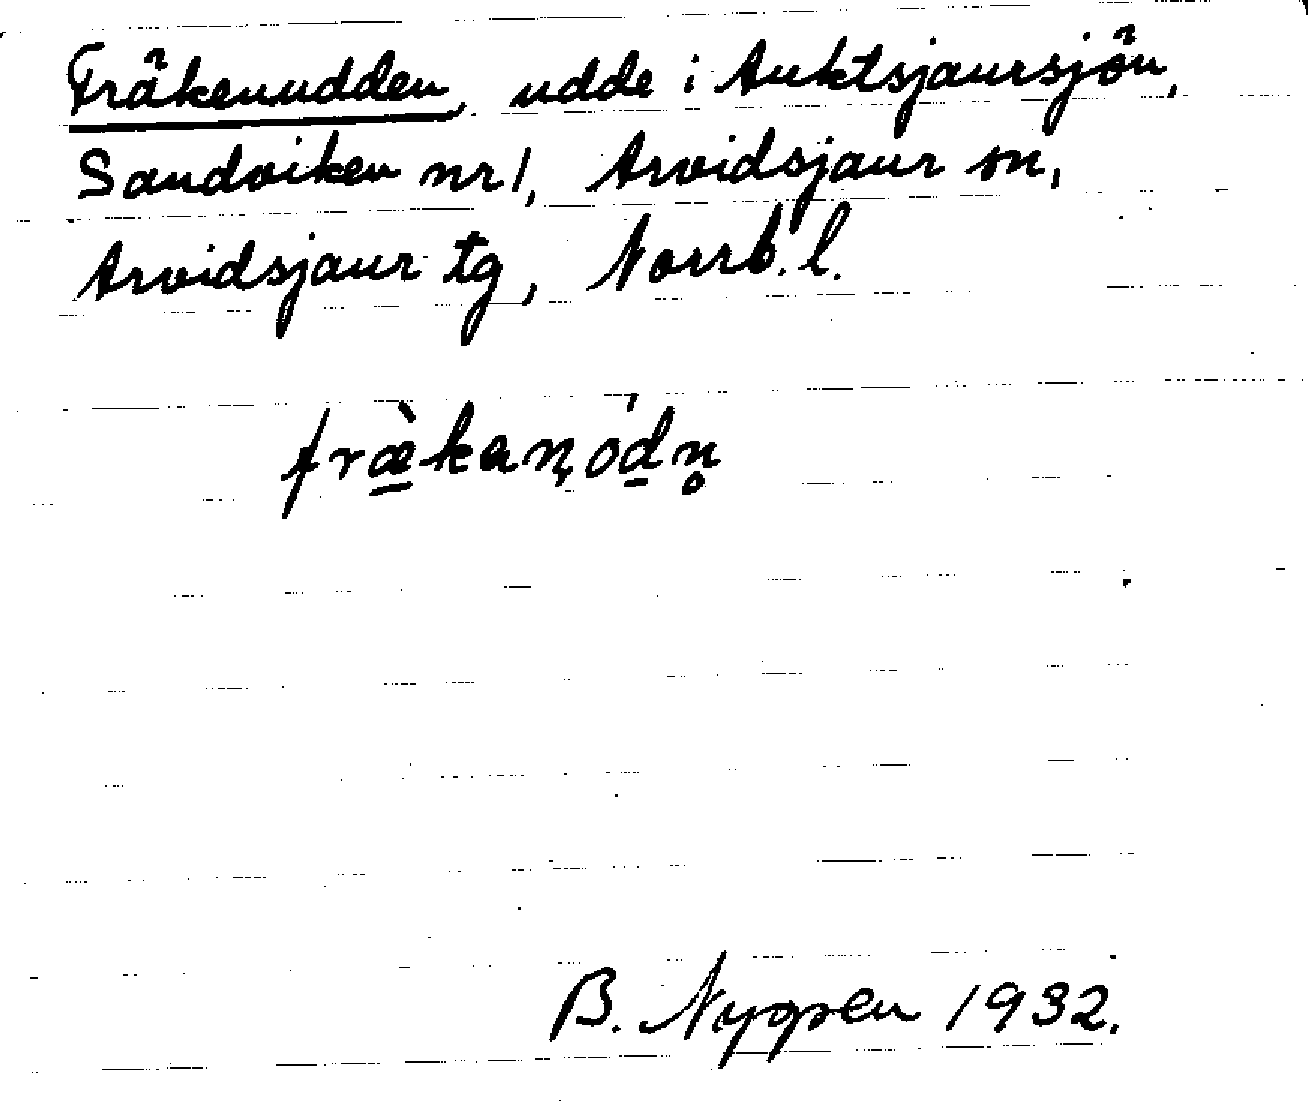 Fräkenudden, udde i Auktsjaursjön,
Sandviken nr 1, Arvidsjaur sn,
Arvidsjaur tg, Norrb. l.
fræ̀kanódn̥
B. Nygren 1932.